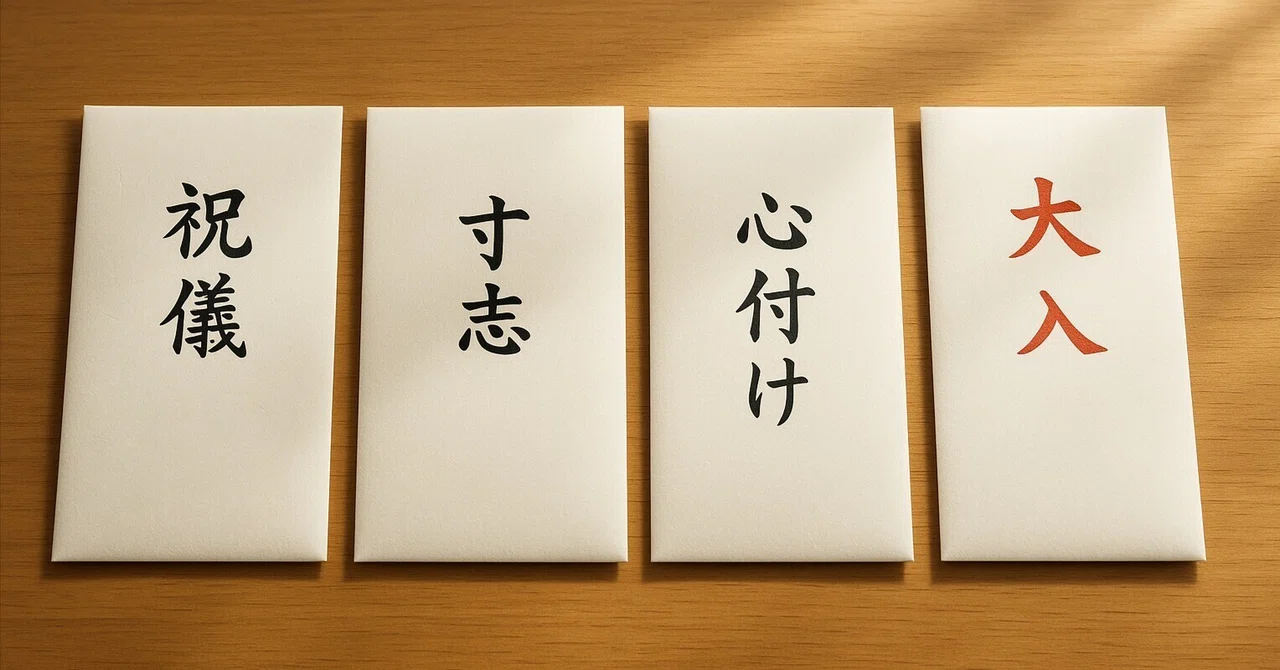 祝儀
寸志
心付け
大入